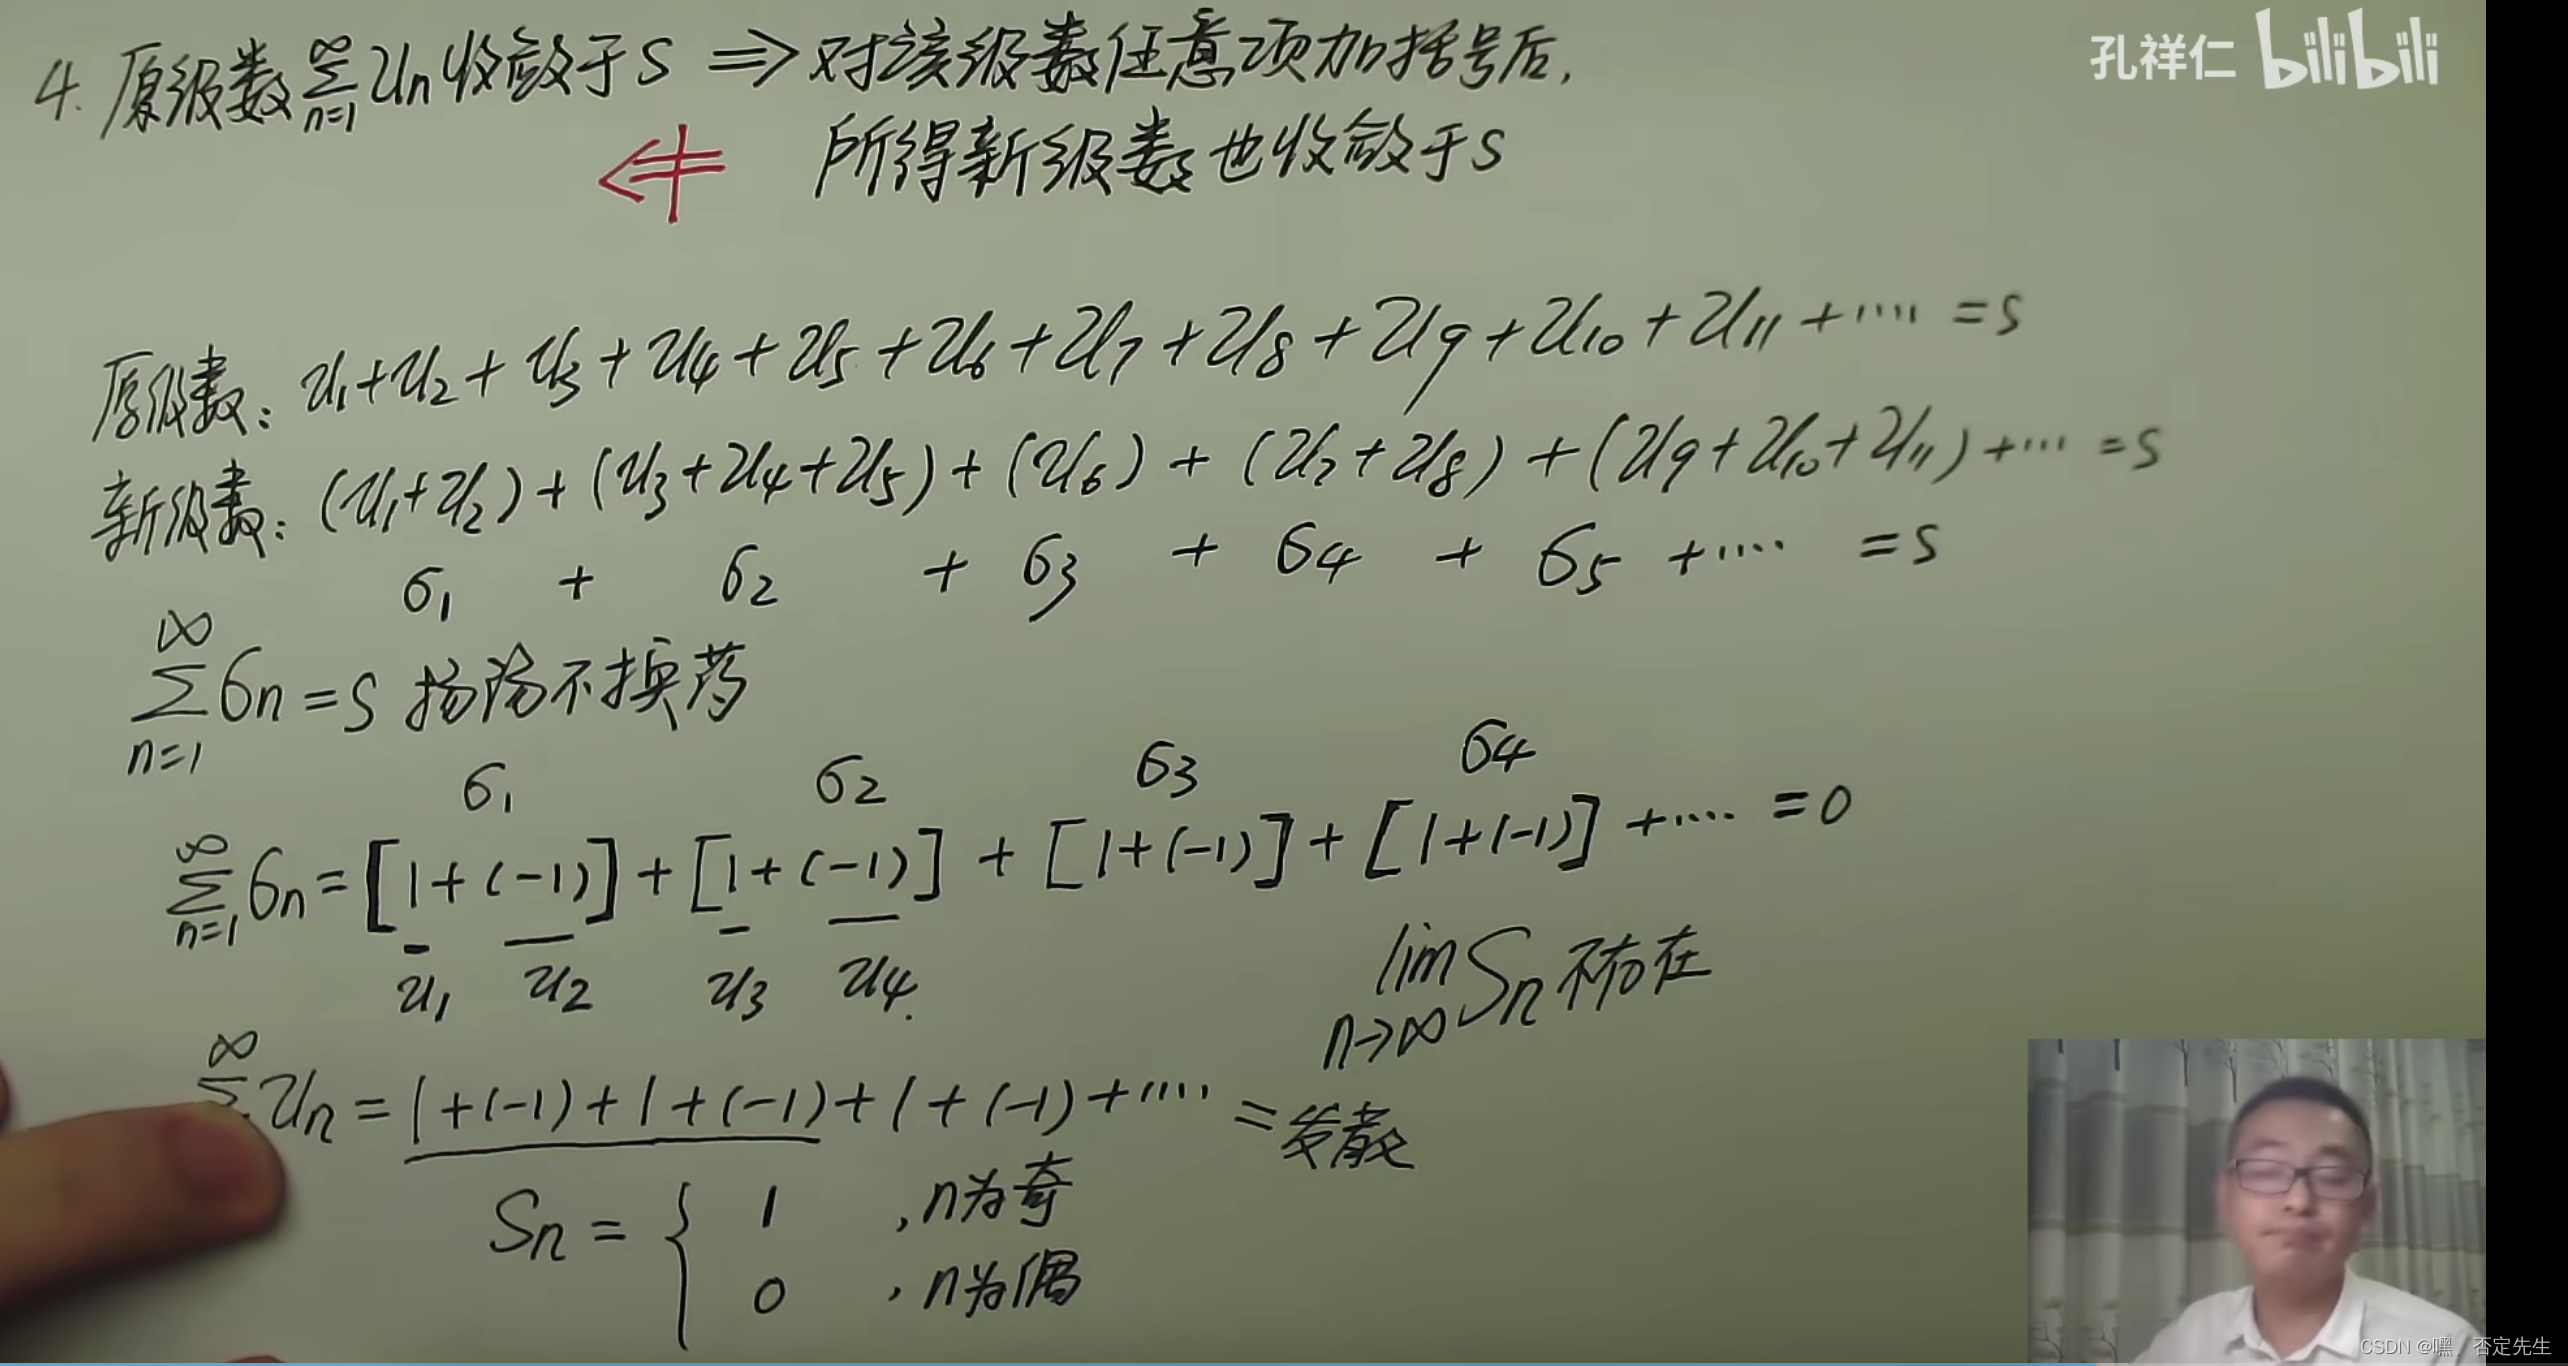 孔祥仁 bilibili
4. 原级数 ∞ Σ n=1 Un 收敛于S ⇒ 对该级数任意项加括号后,
所得新级数也收敛于S
原级数: u1+u2+u3+u4+u5+u6+u7+u8+u9+u10+u11+···· =S
新级数: (u1+u2)+(u3+u4+u5)+(u6)+(u7+u8)+(u9+u10+u11)+··· =S
σ1 + σ2 + σ3 + σ4 + σ5 +···· =S
∞ Σ n=1 σn =S 换汤不换药
σ1 σ2 σ3 σ4
∞ Σ n=1 σn = [1+(-1)]+[1+(-1)]+[1+(-1)]+[1+(-1)]+···· =0
u1 u2 u3 u4.
lim n→∞ Sn 不存在
∞ Σ un = 1+(-1)+1+(-1)+1+(-1)+···· =发散
Sn = { 1 , n为奇
0 , n为偶
CSDN @嘿、否定先生